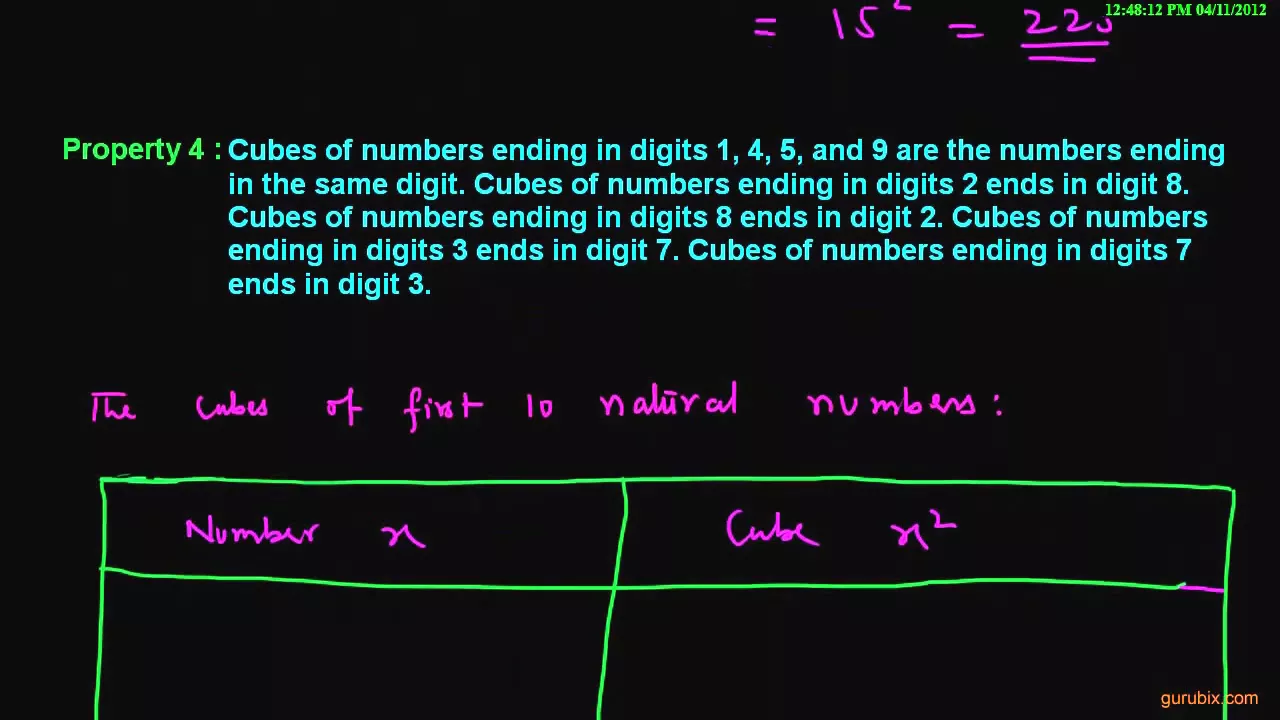 12:48:12 PM 04/11/2012
= 15² = 225
Property 4 : Cubes of numbers ending in digits 1, 4, 5, and 9 are the numbers ending
in the same digit. Cubes of numbers ending in digits 2 ends in digit 8.
Cubes of numbers ending in digits 8 ends in digit 2. Cubes of numbers
ending in digits 3 ends in digit 7. Cubes of numbers ending in digits 7
ends in digit 3.
The cubes of first 10 natural numbers:
Number x Cube x²
gurubix.com